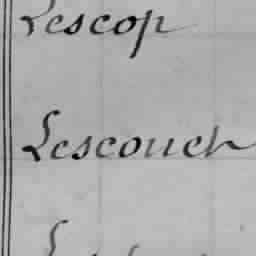 Lescop
Lescouch